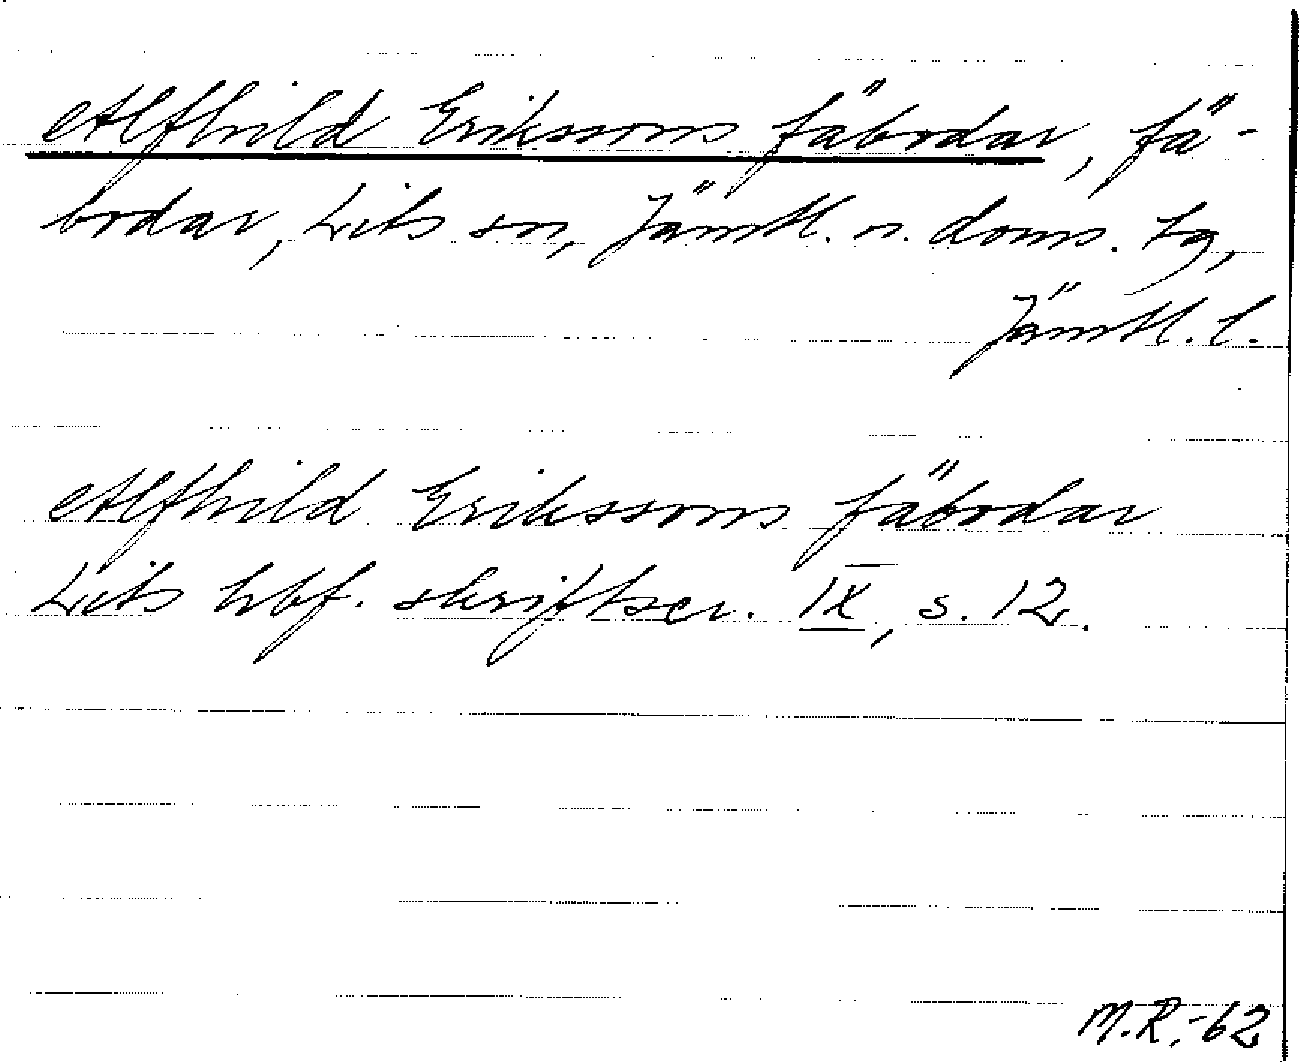 Alfhild Erikssons fäbodar, fä-
bodar, Lits sn, Jämtl. n. doms. tg,
Jämtl. l.
Alfhild Erikssons fäbodar
Lits hbf. skriftser. IX, s. 12.
M.R.-62